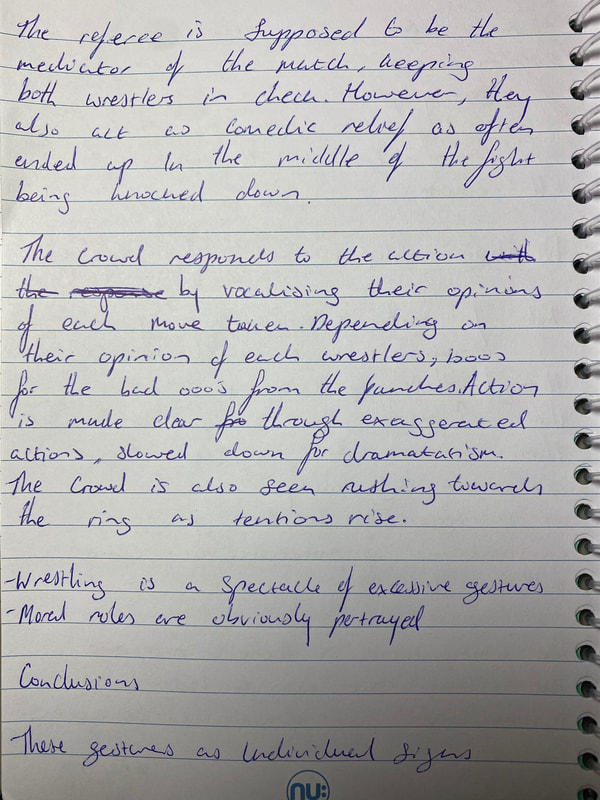 The referee is supposed to be the
mediator of the match, keeping
both wrestlers in check. However, they
also act as Comedic relief as often
ended up in the middle of the fight
being knocked down.
The Crowd responds to the action with
the response by vocalising their opinions
of each move taken. Depending on
their opinion of each wrestlers, boos
for the bad ooo's from the punches. Action
is made clear fro through exaggerated
actions, slowed down for dramatarism.
The Crowd is also seen rushing towards
the ring as tentions rise.
-Wrestling is a Spectacle of excessive gestures
-Moral roles are obviously portrayed
Conclusions
These gestures as individual signs
nu: